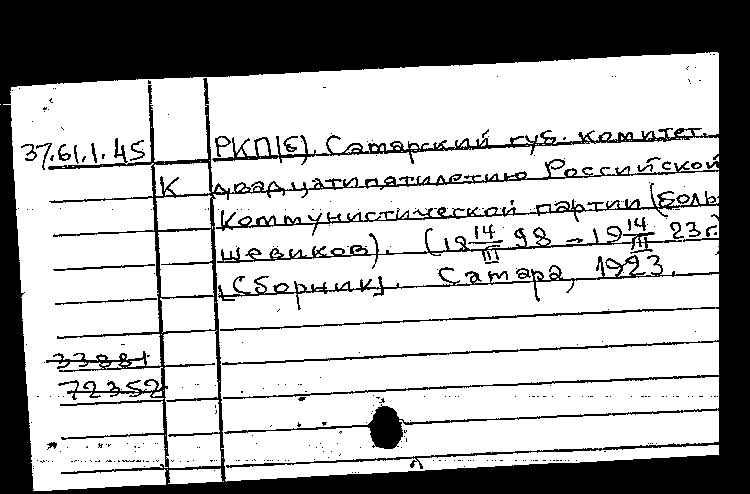 37.61.1.45 РКП(б). Самарский губ. комитет.
К двадцатипятилетию Российской
Коммунистической партии (боль-
шевиков). (18 14/III 98 – 19 14/III 23 г.)
[Сборник]. Самара, 1923.
33881
72352